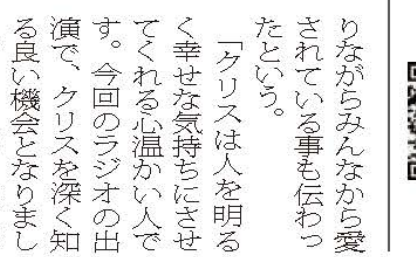 りながらみんなから愛
されている事も伝わっ
たという。
「クリスは人を明る
く幸せな気持ちにさせ
てくれる心温かい人で
す。今回のラジオの出
演で、クリスを深く知
る良い機会となりまし